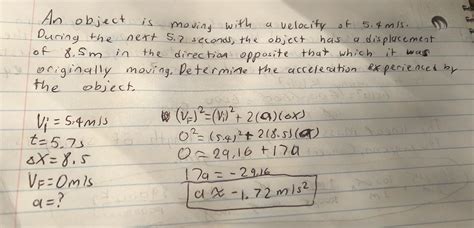 An object is moving with a velocity of 5.4 m/s.
During the next 5.7 seconds, the object has a displacement
of 8.5m in the direction opposite that which it was
originally moving. Determine the acceleration experienced by
the object.
Vi = 5.4 m/s
t = 5.7s
Δx = 8.5
VF = 0 m/s
a = ?
(VF)² = (Vi)² + 2(a)(Δx)
0² = (5.4)² + 2(8.5)(a)
0 = 29.16 + 17a
17a = -29.16
a ≈ -1.72 m/s²